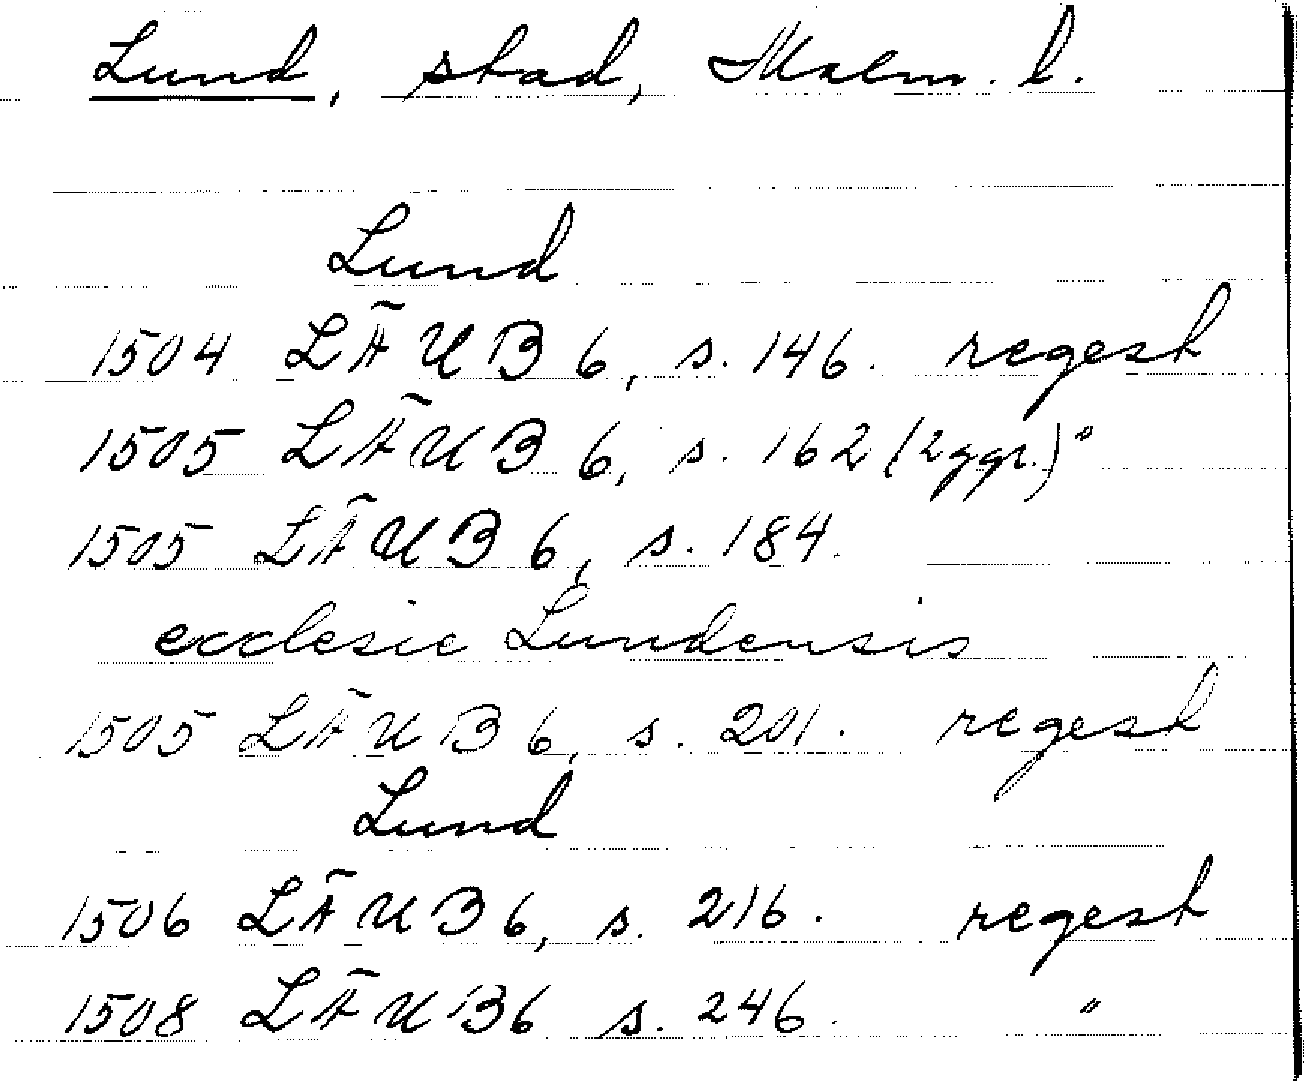 Lund, stad, Malm. l.
Lund
1504 LÄUB 6, s. 146. regest
1505 LÄUB 6, s. 162 (2 ggr.) "
1505 LÄUB 6, s. 184.
ecclesie Lundensis
1505 LÄUB 6, s. 201. regest
Lund
1506 LÄUB 6, s. 216. regest
1508 LÄUB 6 s. 246. "